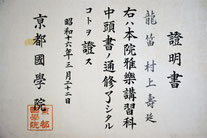 證明書
龍笛 村上壽延
右ハ本院雅樂講習科
中頭書ノ通修了シタル
コトヲ證ス
昭和十六年三月二十二日
京都國學院